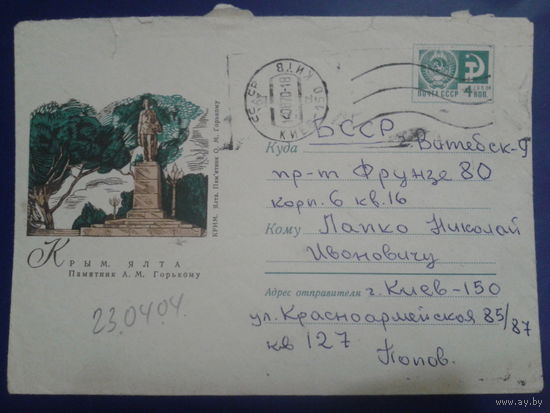 ПОЧТА СССР
4
КОП.
КИЇВ
КИЕВ
КРИМ. Ялта. Пам'ятник О. М. Горькому
КРЫМ. ЯЛТА
Памятник А. М. Горькому
23.04.04.
Куда БССР Витебск-9
пр-т Фрунзе 80
корп. 6 кв. 16
Кому Лапко Николай
Ивоновичу
Адрес отправителя г. Киев-150
ул. Красноармейская 85/87
кв 127 Попов.
www.ay.by